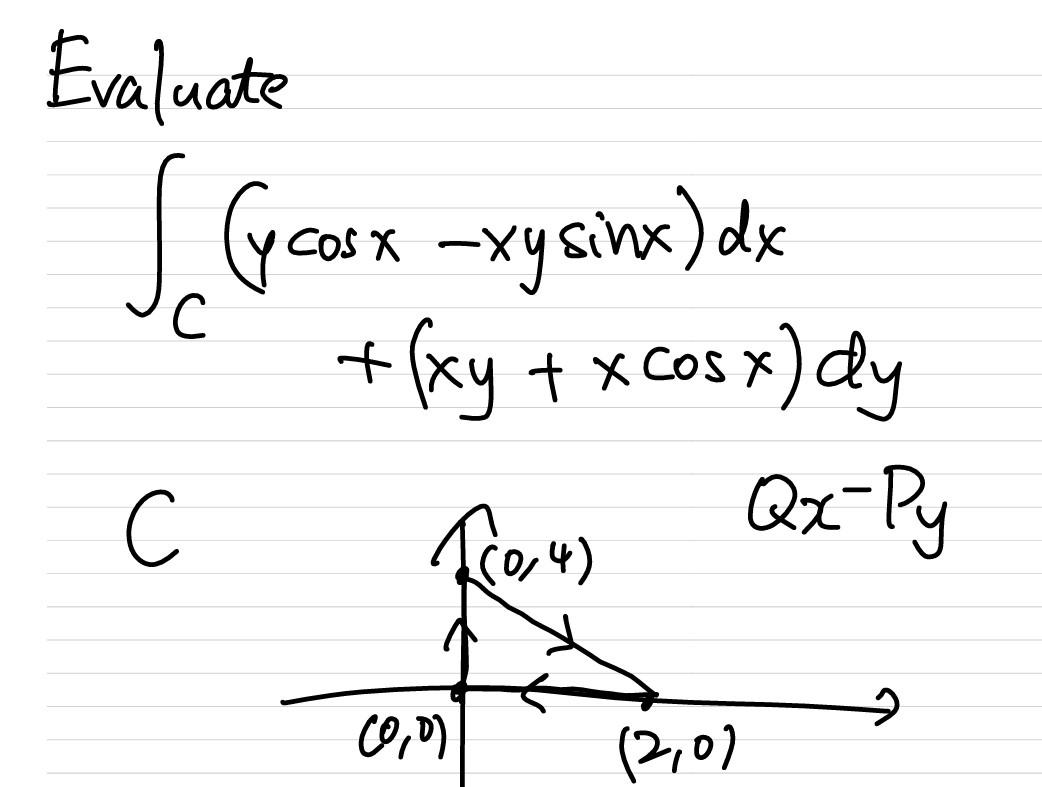 Evaluate
∫_C (y cos x − xy sin x) dx
+ (xy + x cos x) dy
C
Qx − Py
(0,4)
(0,0)
(2,0)